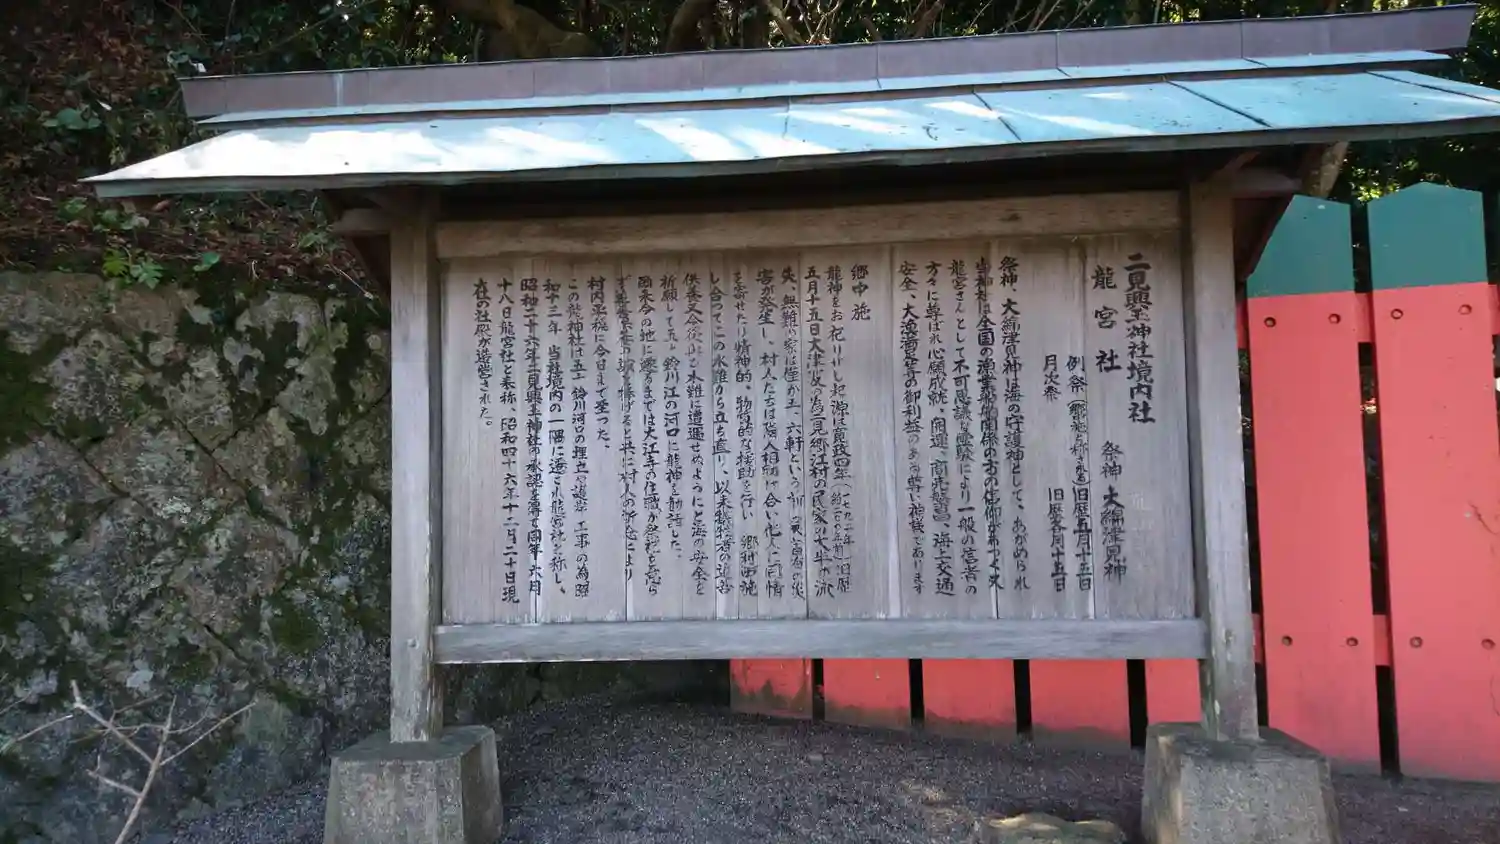 二見興玉神社境内社
龍宮社 祭神 大綿津見神
例祭(郷中施と称へ)旧暦五月十五日
月次祭 旧暦各月十五日
祭神、大綿津見神は海の守護神として、あがめられ
当神社は全国の漁業船舶関係の方の信仰が最も
龍宮さんとして不可思議な霊験により一般の信者の
方々に尊ばれ心願成就、開運、商売繁昌、海上交通
安全、大漁満足等の御利益のある尊い神様であります
郷中施
龍神をお祀りせし起源は寛政四年(一七九二年)(約二百年前)旧暦
五月十五日大津波の為二見郷江村の民家の大半が流
失、無難の家は僅か五、六軒という
害が発生し、村人たちは隣人相助け合い他人に同情
を寄せたり精神的、物質的な援助を行い 郷村
し合ってこの水難から立ち直り、以来犠牲者の追善
供養又今後再び水難に遭遇せぬようにと海の安全を
祈願して五十鈴川江の河口に龍神を勧請した。
爾来今の地に遷るまでは大江寺の住職が
を捧げると共に村人の祈念により
村内平穏に今日まで至った。
この龍神社は五十鈴川河口の埋立や護岸工事の為昭
和十三年 当社境内の一隅に遷され龍宮社と称し、
昭和二十六年二見興玉神社の承認を得て同年六月
十八日龍宮社と表称、昭和四十六年十二月二十日現
在の社殿が造営された。